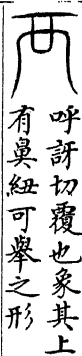 襾
呼訝切覆也象其上
有鼻紐可舉之形